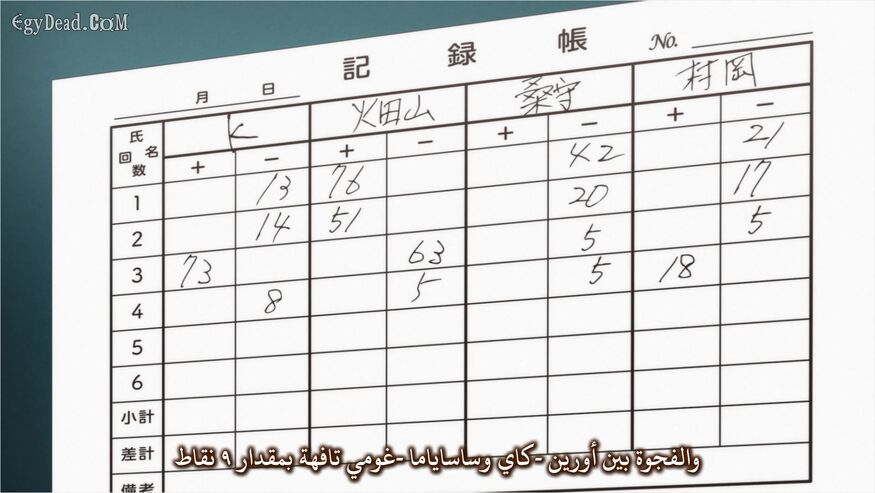 EgyDead.CoM
記録帳 No.
月 日
氏名 回数 K 火田山 桑守 村岡
+ − + − + − + −
1 13 76 42 21
2 14 51 20 17
3 73 63 5 5
4 8 5 5 18
5
6
小計
差計
備考
والفجوة بين أورين -كاي وساساياما -غومي تافهة بمقدار ٩ نقاط